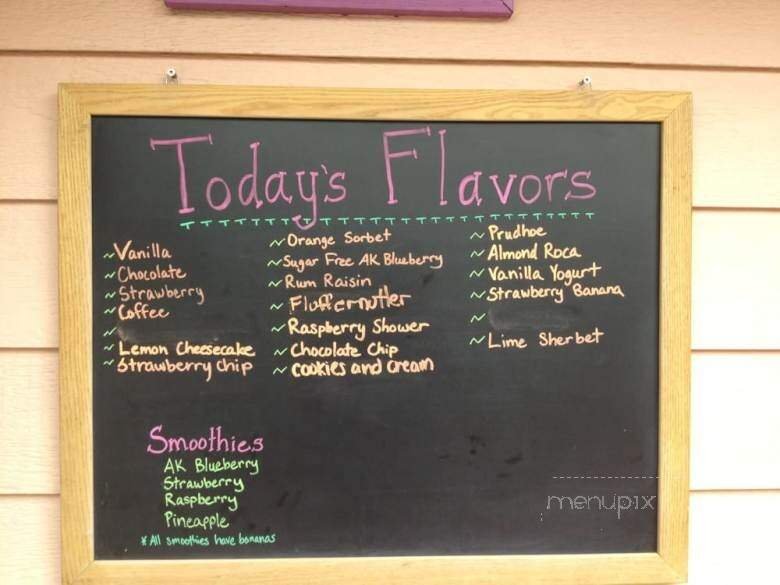 Today's Flavors
~ Vanilla
~ Chocolate
~ Strawberry
~ Coffee
~
~ Lemon Cheesecake
~ Strawberry Chip
~ Orange Sorbet
~ Sugar Free AK Blueberry
~ Rum Raisin
~ Fluffernutter
~ Raspberry Shower
~ Chocolate Chip
~ cookies and cream
~ Prudhoe
~ Almond Roca
~ Vanilla Yogurt
~ Strawberry Banana
~
~ Lime Sherbet
Smoothies
AK Blueberry
Strawberry
Raspberry
Pineapple
* All smoothies have bananas
menupix